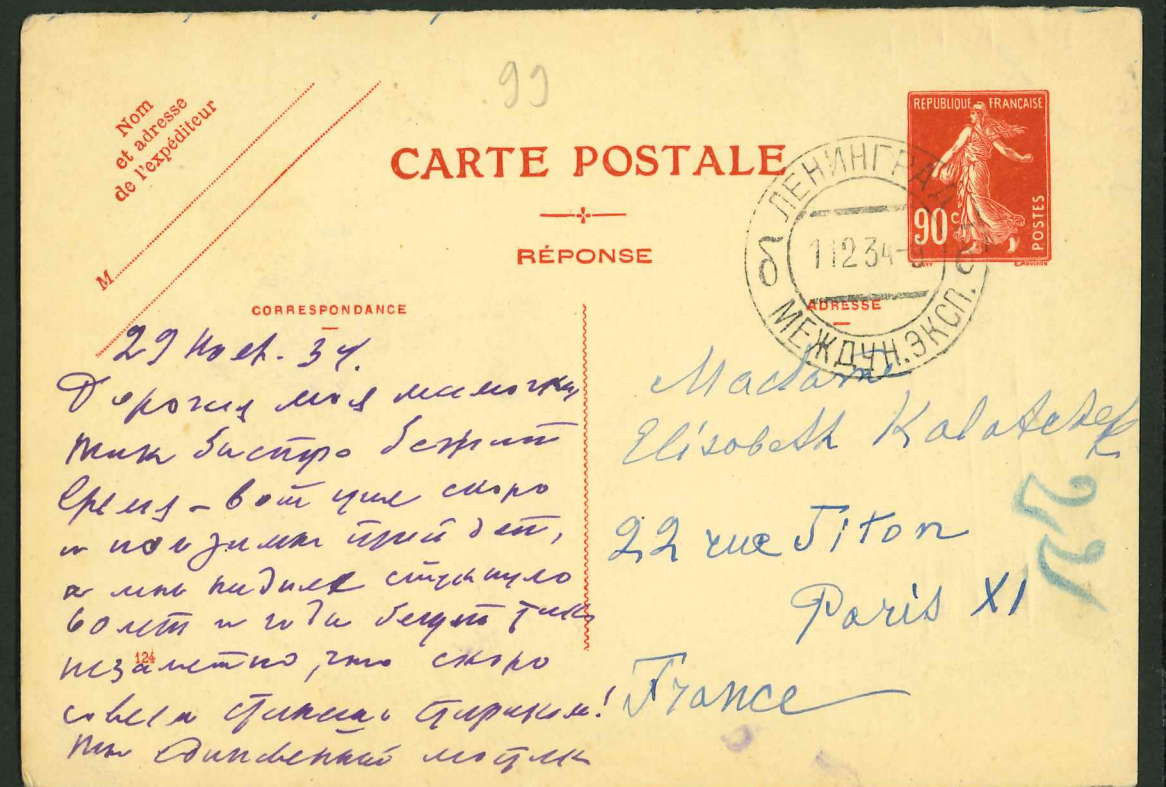 99
Nom
et adresse
de l'expéditeur
M
CARTE POSTALE
RÉPONSE
REPUBLIQUE FRANÇAISE
90 c
POSTES
ЛЕНИНГРАД
1 12 34-9
МЕЖДУН. ЭКСП.
б б
CORRESPONDANCE
29 Нояб. 34.
Дорогая моя мамочка
так быстро бежит
время – вот уже скоро
и зима прийдет,
а мне стукнуло
60 лет и года бегут так
незаметно, что скоро
совсем стариком!
124
ADRESSE
Madame
Elisabeth Kalatcheff
22 rue Titon
Paris XI
France